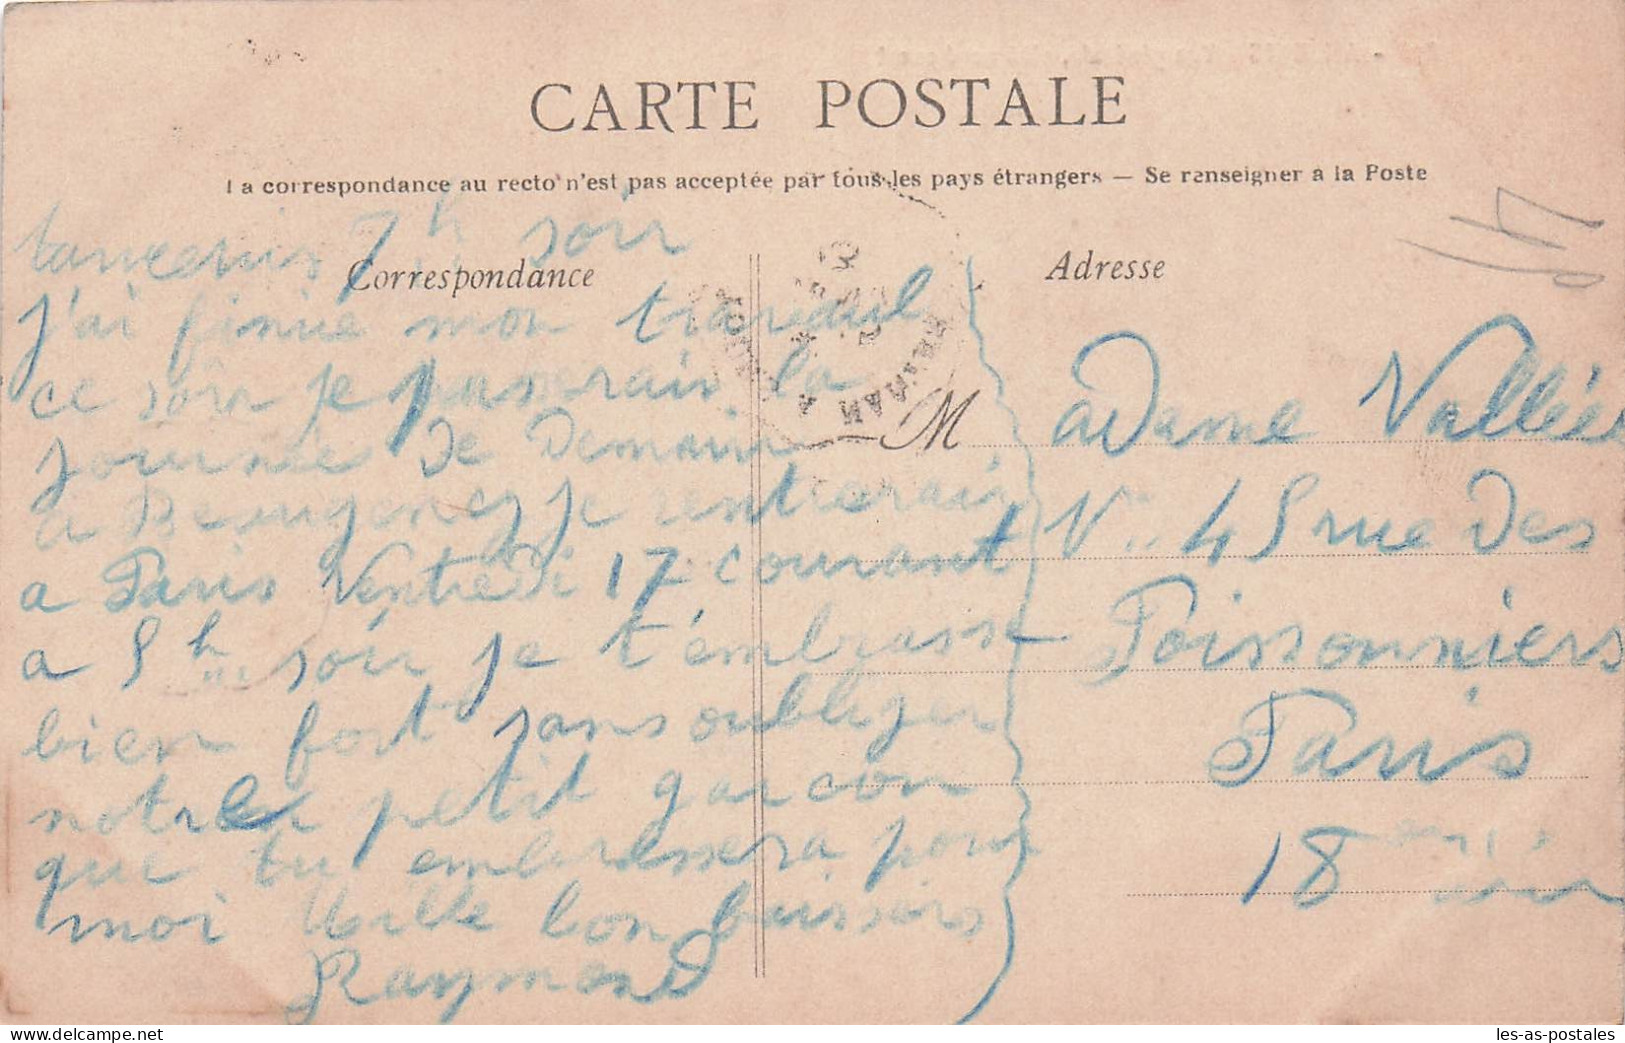 CARTE POSTALE
La correspondance au recto n'est pas acceptée par tous les pays étrangers — Se renseigner à la Poste
7h soir
Correspondance
Adresse
j'ai finie mon travail
ce soir je passerais la
journée de Demain
a Beaugency je rentrerais
a Paris Ventredi 17 courant
a 5h soir je t'embrasse
bien fort sans oublier
notre petit garcon
que tu embrassera pour
moi Mille bon baisers
Raymond
M adame Vallée
No 45 rue Des
Poissonniers
Paris
18
les-as-postales